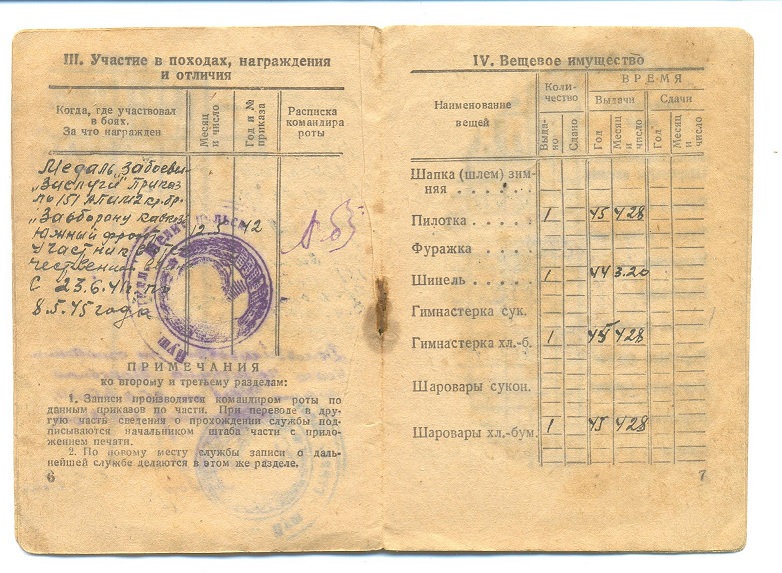 III. Участие в походах, награждения
и отличия
Когда, где участвовал
в боях.
За что награжден
Месяц
и число
Год и №
приказа
Расписка
командира
роты
Медаль „За боевы
„Заслуги" приказ
по 151
„За оборону кавказ
Южный фронт 25 42
Участник
чественной
С 23.6.41г. по
8.5.45 года
ПРИМЕЧАНИЯ
ко второму и третьему разделам:
1. Записи производятся командиром роты по
данным приказов по части. При переводе в дру-
гую часть сведения о прохождении службы под-
писываются начальником штаба части с прило-
жением печати.
2. По новому месту службы записи о даль-
нейшей службе делаются в этом же разделе.
6
IV. Вещевое имущество
Наименование
вещей
Коли-
чество
ВРЕМЯ
Выдачи
Сдачи
Выда-
но
Сдано
Год
Месяц
и
число
Год
Месяц
и
число
Шапка (шлем) зим-
няя . . . . . .
Пилотка . . . . . 1 45 4.28
Фуражка . . . . .
Шинель . . . . . 1 44 3.20
Гимнастерка сук.
Гимнастерка хл.-б. 1 45 4.28
Шаровары сукон.
Шаровары хл.-бум. 1 45 4.28
7